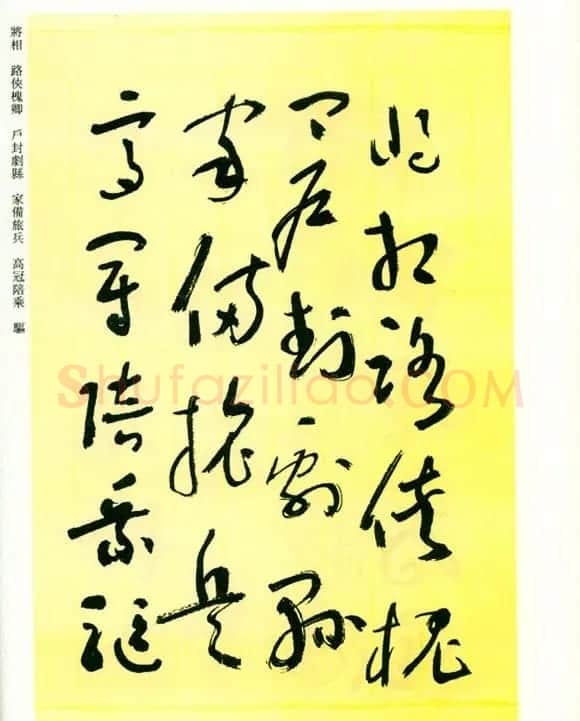 將相路俠槐
卿戶封劇縣
家備旅兵
高冠陪乘驅
將相 路俠槐卿 戶封劇縣 家備旅兵 高冠陪乘 驅
Shufaziliao.COM